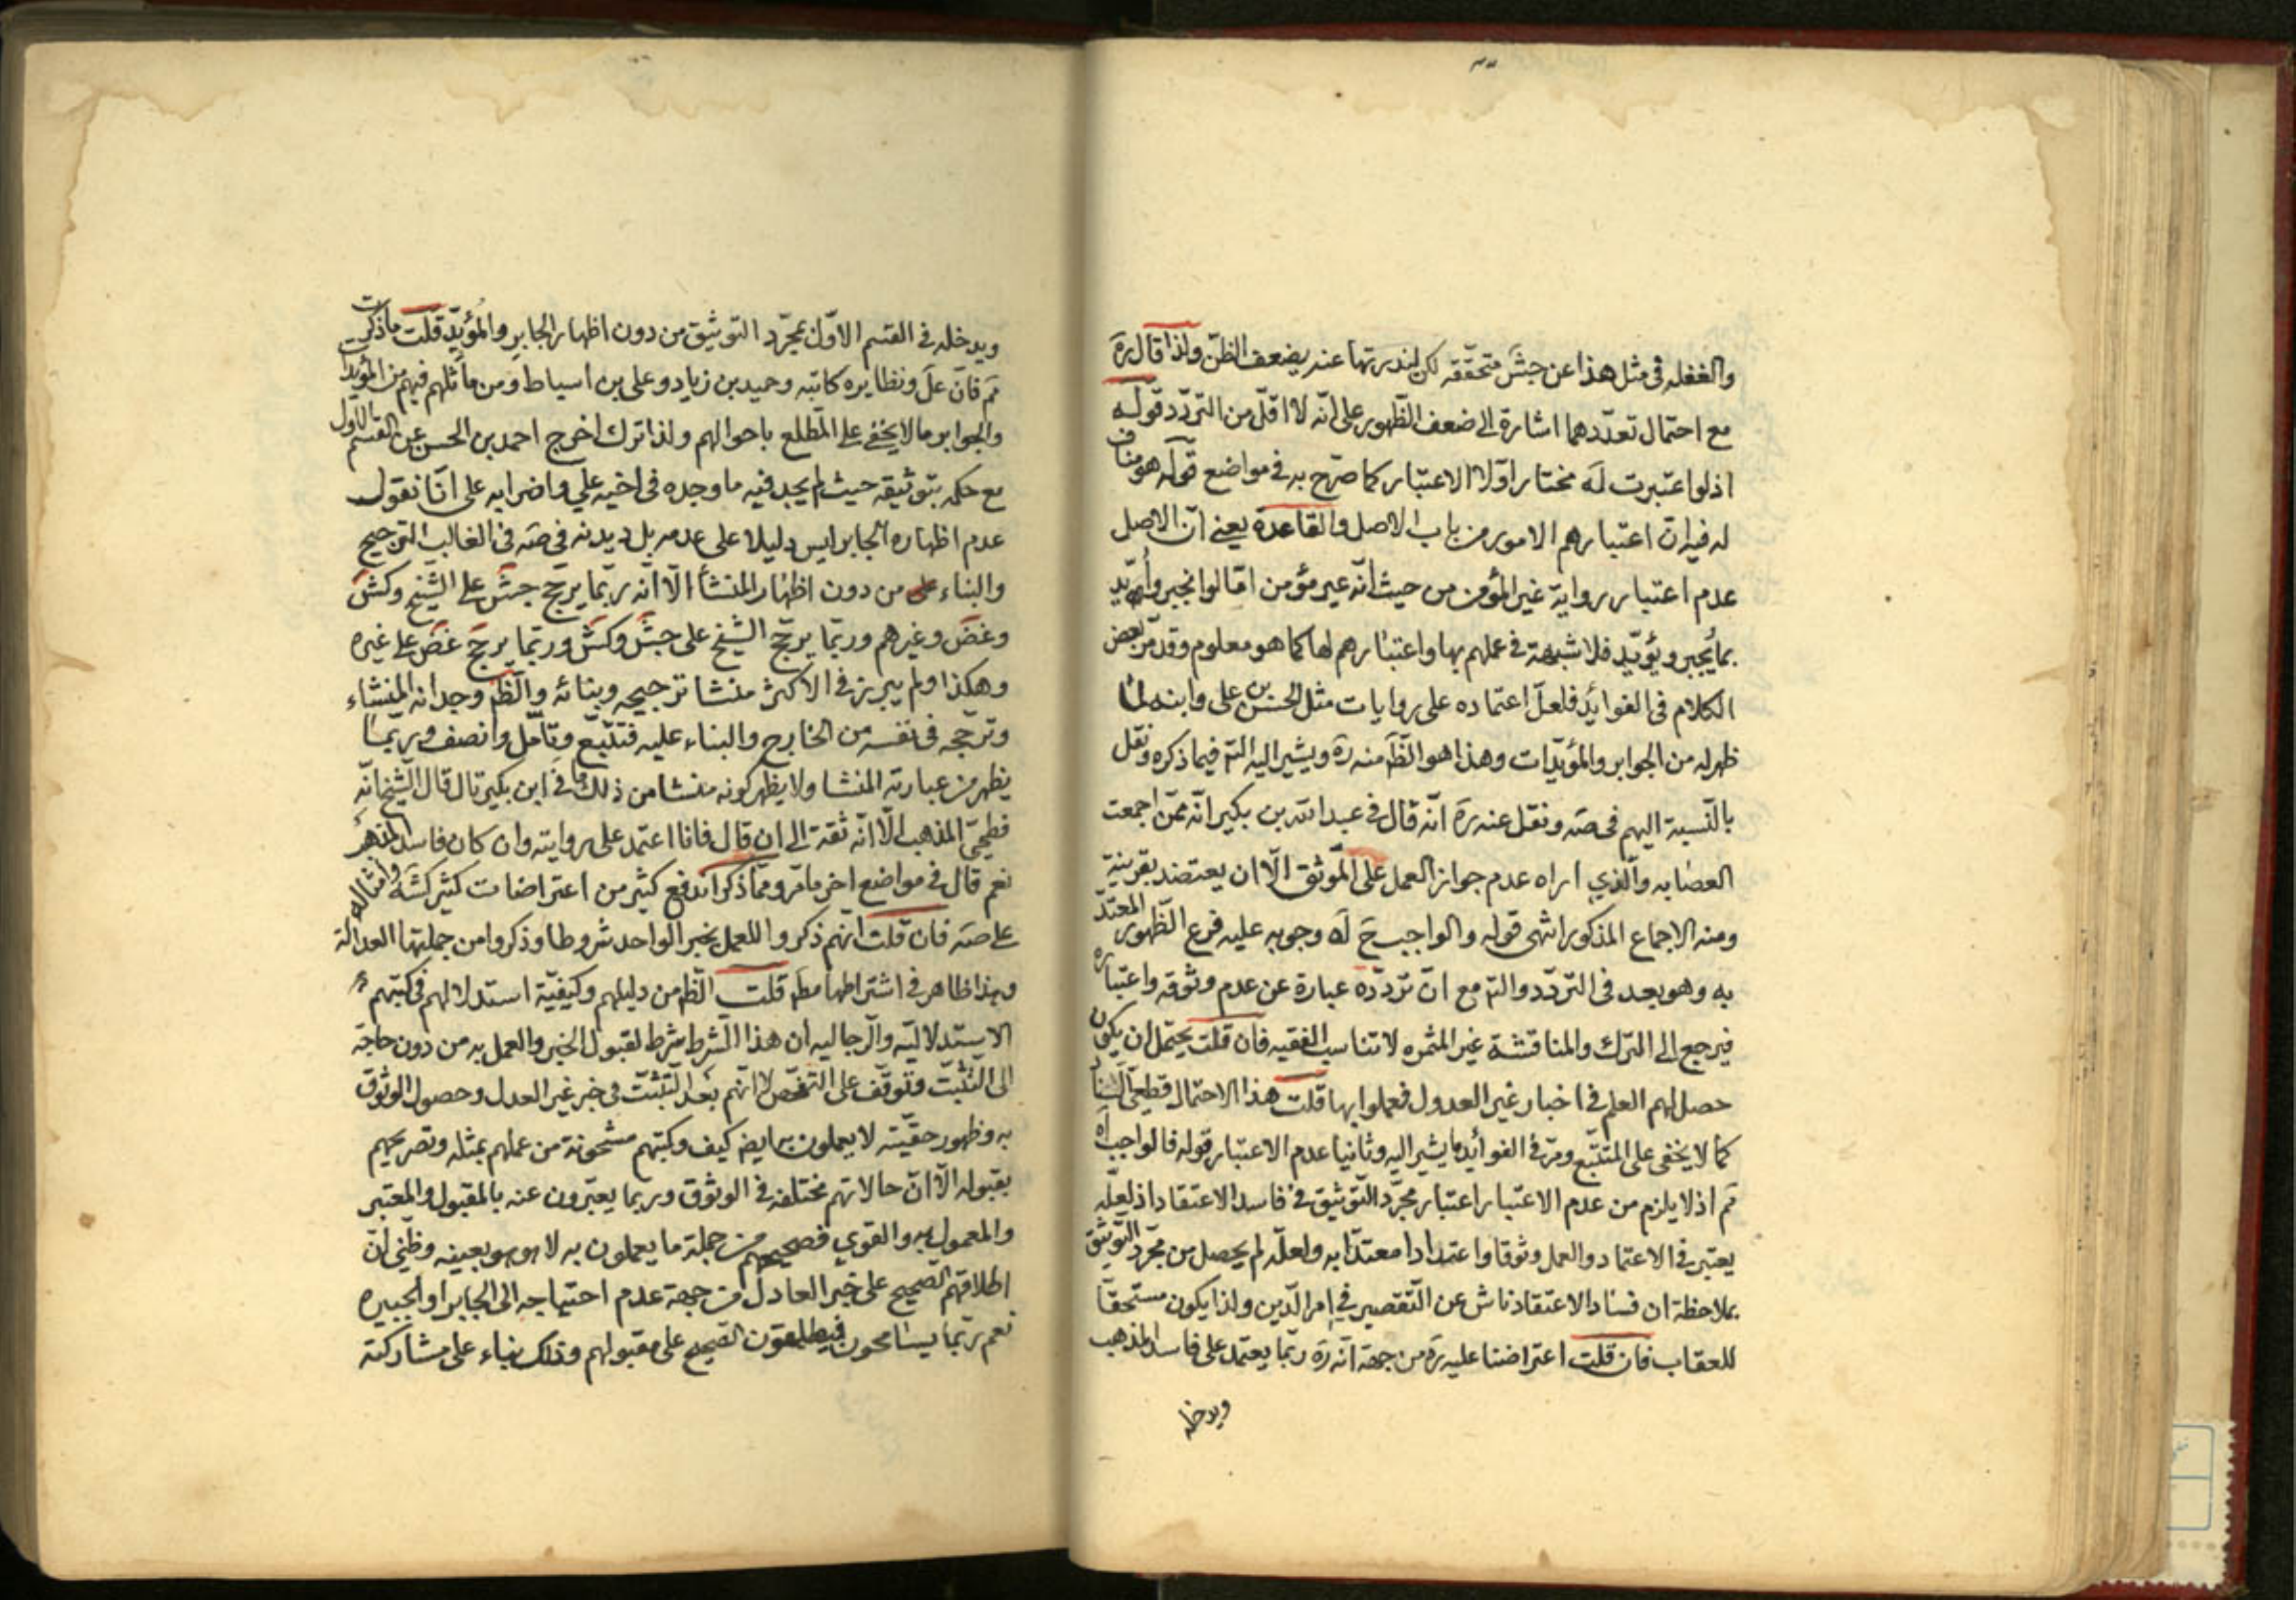 والغفله فى مثل هذا عن جش متحققه لكن لندرتها عنده يضعف الظن ولذا قال ره
مع احتمال تعددهما اشارة الى ضعف الظهور على انه لا اقل من التردد قوله
اذ لو اعتبرت له مختار اولا الاعتبار كما صرح به فى مواضع قوله هو مناف
له فيه ان اعتبارهم الامور من باب الاصل والقاعدة يعنى ان الاصل
عدم اعتبار رواية غير المؤمن من حيث انه غير مؤمن اما لو انجبر وايد
بما يجبر ويؤيد فلا شبهة فى عملهم بها واعتبارهم لها كما هو معلوم وقد مر بعض
الكلام فى الفوائد فلعل اعتماده على روايات مثل الحسن بن على وابنه لما
ظهر له من الجوابر والمؤيدات وهذا هو الظ منه ره ويشير اليه التم فيما ذكره ونقل
بالنسبة اليهم فى صه ونقل عنه ره انه قال فى عبد الله بن بكير انه ممن اجمعت
العصابه والذي اراه عدم جواز العمل على الموثق الا ان يعتضد بقرينة
ومنه الاجماع المذكور انتهى قوله والواجب ح له وجوبه عليه فرع الظهور المعتد
به وهو بعد فى التردد والتم مع ان تردده عبارة عن عدم وثوقه واعتباره
فيرجع الى الترك والمناقشة غير المثمره لا تناسب الفقيه فان قلت يحتمل ان يكون
حصل لهم العلم فى اخبار غير العدول فعملوا بها قلت هذا الاحتمال قطعى الفساد
كما لا يخفى على المتتبع ومر فى الفوائد ما يشير اليه وثانيا عدم الاعتبار قوله فالواجب اه
تم اذ لا يلزم من عدم الاعتبار اعتبار مجرد التوثيق فى فاسد الاعتقاد اذ لعله
يعتبر فى الاعتماد والعمل وثوقا واعتدادا معتدا به ولعله لم يحصل من مجرد التوثيق
بملاحظة ان فساد الاعتقاد ناش عن التقصير فى امر الدين ولذا يكون مستحقا
للعقاب فان قلت اعتراضنا عليه ره من جهة انه ره ربما يعتمد على فاسد المذهب
ويدخله
ويدخله فى القسم الاول بمجرد التوثيق من دون اظهار الجابر والمؤيد قلت ما ذكرت
تم فان عل ونظايره كاتبه وحميد بن زياد وعلى بن اسباط ومن ماثلهم فيهم من المؤيدات
والجوابر ما لا يخفى على المطلع باحوالهم ولذا تراه اخرج احمد بن الحسن عن القسم الاول
مع حكمه بتوثيقه حيث لم يجد فيه ما وجده فى اخيه علي واضرابه على انا نقول
عدم اظهاره الجابر ليس دليلا على عدمه بل ديدنه فى صه فى الغالب الترجيح
والبناء على من دون اظهار المنشأ الا انه ربما يرجح جش على الشيخ وكش
وغض وغيرهم وربما يرجح الشيخ على جش وكش وربما يرجح غض على غيره
وهكذا ولم يبرز فى الاكثر منشا ترجيحه وبنائه والظ وجدانه المنشاء
وترجحه فى نفسه من الخارج والبناء عليه فتتبع وتامل وانصف وربما
يظهر من عبارته المنشا ولا يظهر كونه منشا من ذلك ما فى ابن بكير قال قال الشيخ انه
فطحى المذهب الا انه ثقة الى ان قال فانا اعتمد على روايته وان كان فاسد المذهب
نعم قال فى مواضع اخر ما مر ومما ذكر اندفع كثير من اعتراضات كثير كشه وامثاله
على صه فان قلت انهم ذكروا للعمل بخبر الواحد شروطا وذكروا من جملتها العدالة
وهذا ظاهر فى اشتراطها مط قلت الظ من دليلهم وكيفية استدلالهم فى كتبهم
الاستدلالية والرجاليه ان هذا الشرط شرط لقبول الخبر والعمل به من دون حاجة
الى التثبت وتوقف على التفحص لا انهم بعد التثبت فى خبر غير العدل وحصول الوثوق
به وظهور حقيته لا يعملون به ايضا كيف وكتبهم مشحونة من عملهم بمثله وتصريحهم
بقبوله الا ان حالاتهم مختلفه فى الوثوق وربما يعبرون عنه بالمقبول والمعتبر
والمعمول به والقوي فصحيحهم من جملة ما يعملون به لا هو هو بعينه وظني ان
اطلاقهم الصحيح على خبر العادل من جهة عدم احتياجه الى الجابر او الجبيره
نعم ربما يسامحون فيطلقون الصحيح على مقبولهم وذلك بناء على مشاركته